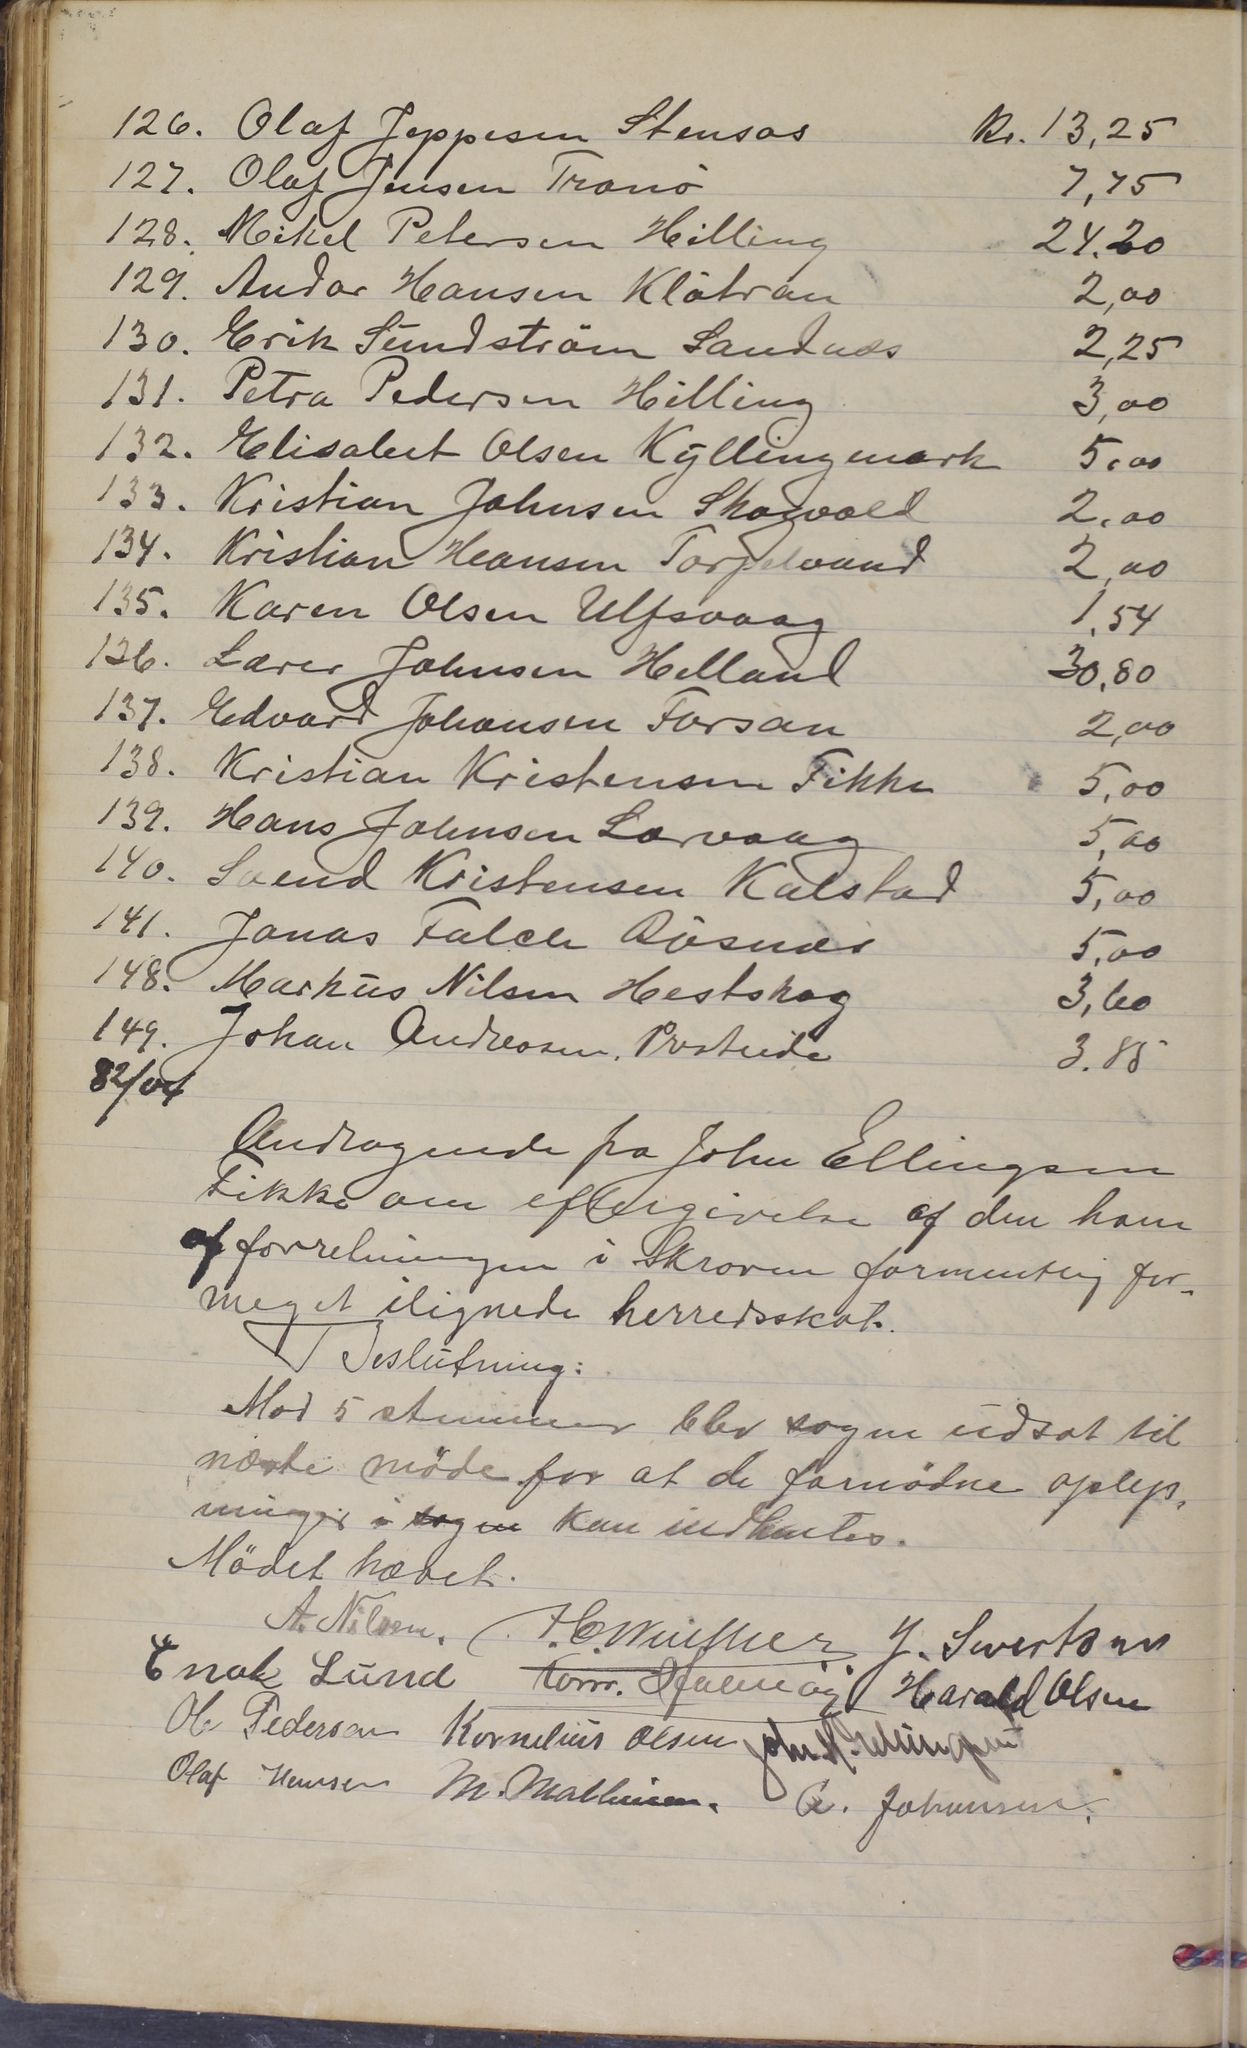 126. Olaf Jeppesen Stensaas Kr. 13,25
127. Olaf Jensen Tranö 7,75
128. Mikel Petersen Hilling 24.20
129. Andor Hansen Klåtran 2,00
130. Erik Sundström Sandnæs 2,25
131. Petra Pedersen Hilling 3,00
132. Elisabet Olsen Kyllingmark 5,00
133. Kristian Johnsen Skogvold 2,00
134. Kristian Hansen Torpelvand 2,00
135. Karen Olsen Ulfsvaag 1,54
136. Lærer Johnsen Helland 30,80
137. Edvard Johansen Forsan 2,00
138. Kristian Kristensen Fikke 5,00
139. Hans Johnsen Lorvaag 5,00
140. Svend Kristensen Kalstad 5,00
141. Jonas Falch Rösnes 5,00
148. Markus Nilsen Hestskog 3,60
149. Johan Andreasen, 3.85
82/04
Andragende fra John Ellingsen
Fikke om eftergivelse af den ham
af forretningen i Skroven formentlig for
meget ilignede herredsskat.
Beslutning:
Mod 5 stemmer blev sagen udsat til
næste möde for at de fornödne oplys-
ninger i sagen kan indhentes.
Mödet hævet.
A. Nilsen. J. Sivertsen
Enok Lund Harald Olsen
Ole Pedersen Kornelius Olsen John H. Ellingsen
Olaf Hansen M. Mathisen. A. Johansen.